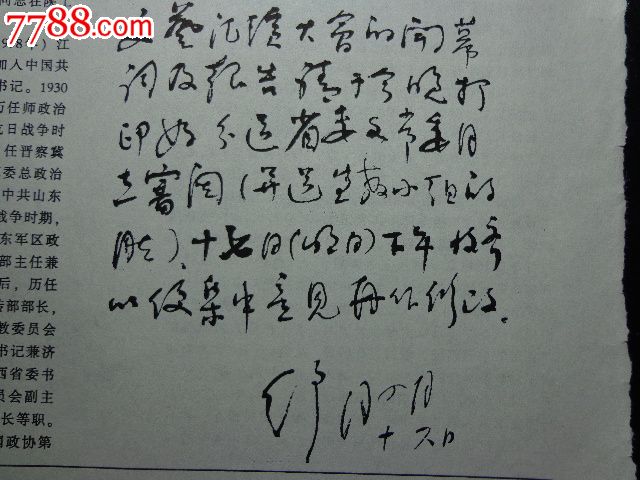 7788.com
998年)江
加入中国共
书记。1930
任师政治
抗日战争时
任晋察冀
委总政治
中共山东
战争时期,
东军区政
部主任兼
后,历任
传部部长,
教委员会
书记兼济
西省委书
员会副主
长等职。
国政协第
文藝汇演大會的開幕
词及報告請于今晚打
印好分送省委各常委同
志審阅(并送宣教小组的
十七日(明日)下午收齐
以便集中意見再作修改。
舒同 四月
十六日